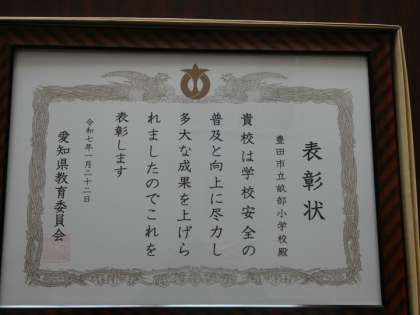 表彰状
豊田市立畝部小学校殿
貴校は学校安全の
普及と向上に尽力し
多大な成果を上げら
れましたのでこれを
表彰します
令和七年一月二十二日
愛知県教育委員会